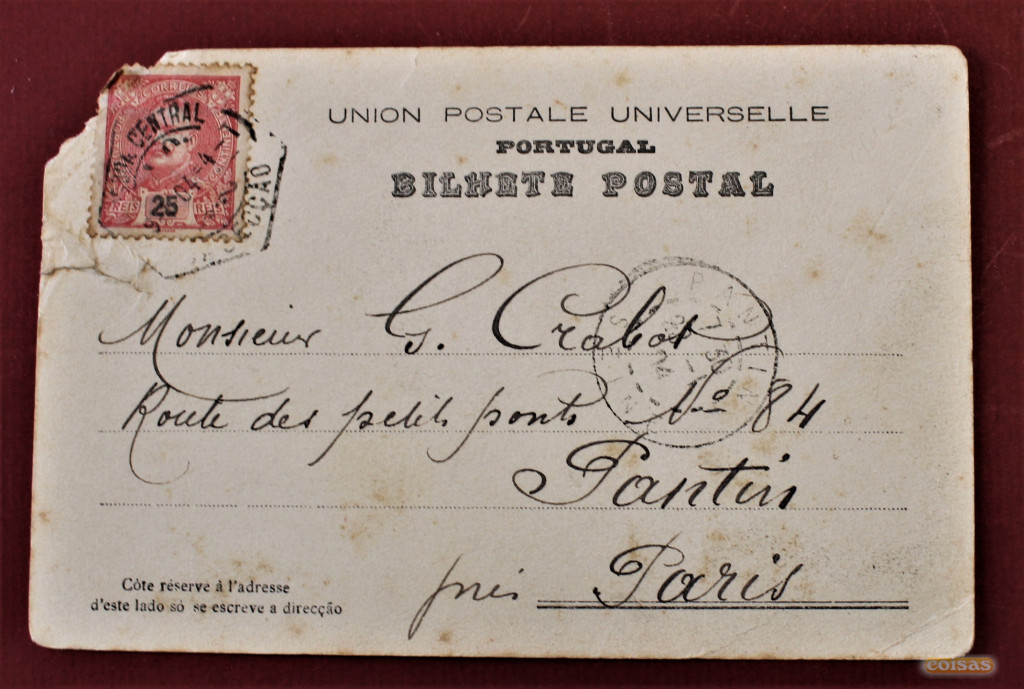 UNION POSTALE UNIVERSELLE
PORTUGAL
BILHETE POSTAL
CENTRAL
25
REIS REIS
PANTIN
Monsieur G. Crabos
Route des petits ponts No 84
Pantin
près Paris
Côte réservé à l'adresse
d'este lado só se escreve a direcção
coisas